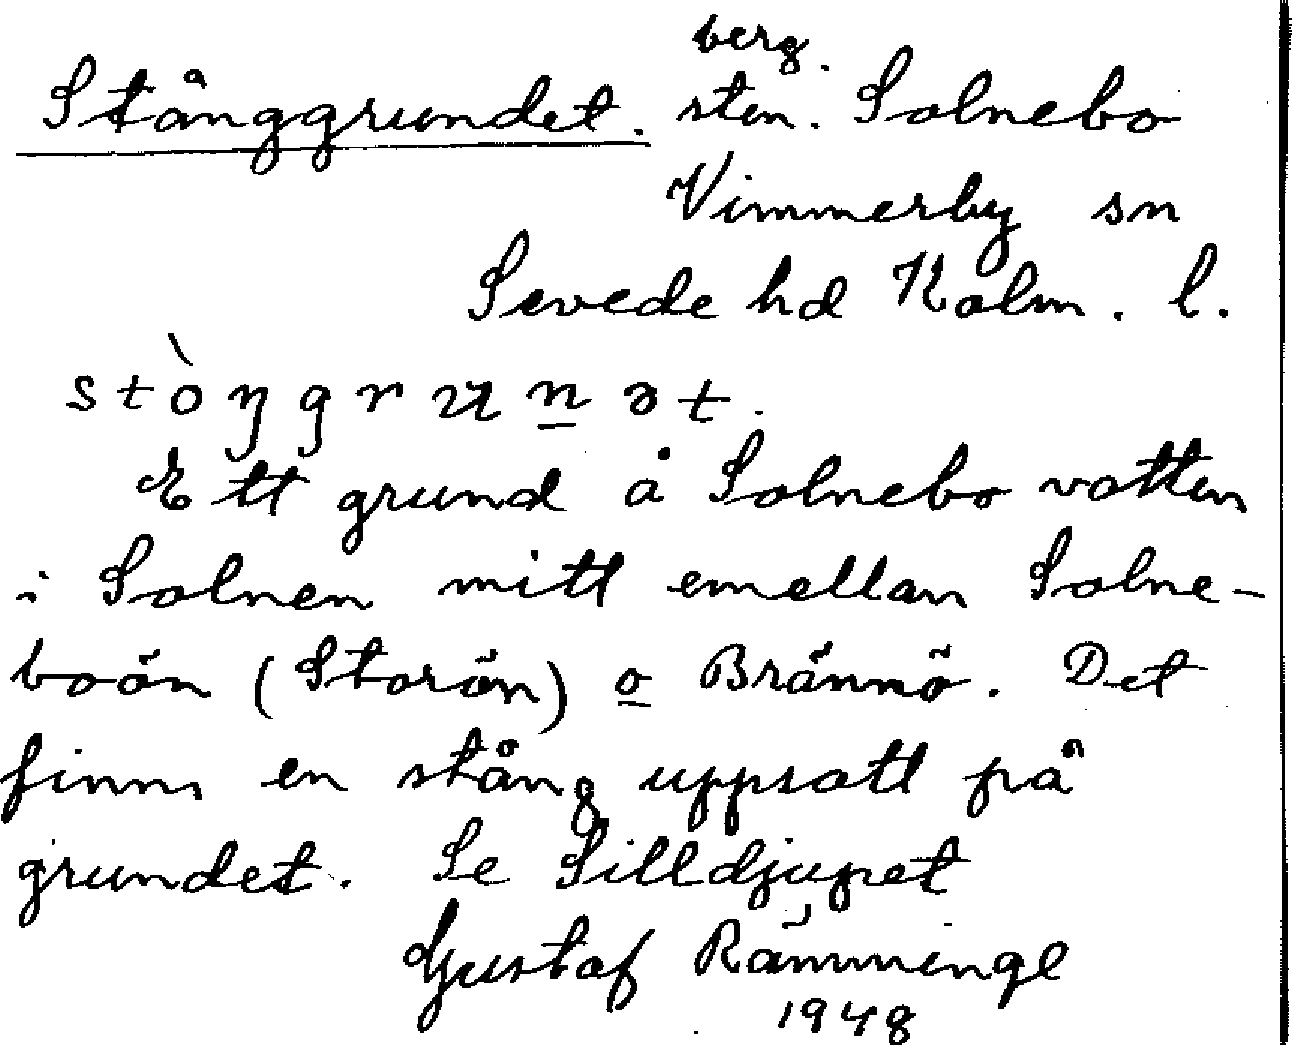 berg.
Stånggrundet. sten. Solnebo
Vimmerby sn
Sevede hd Kalm. l.
stòŋgrʉn̲ət.
Ett grund å Solnebo vatten
i Solnen mitt emellan Solne-
boön (Storön) o Brännö. Det
finns en stång uppsatt på
grundet. Se Silldjupet
Gustaf Rämminge
1948